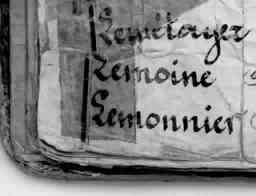 Lemétayer
Lemoine
Lemonnier